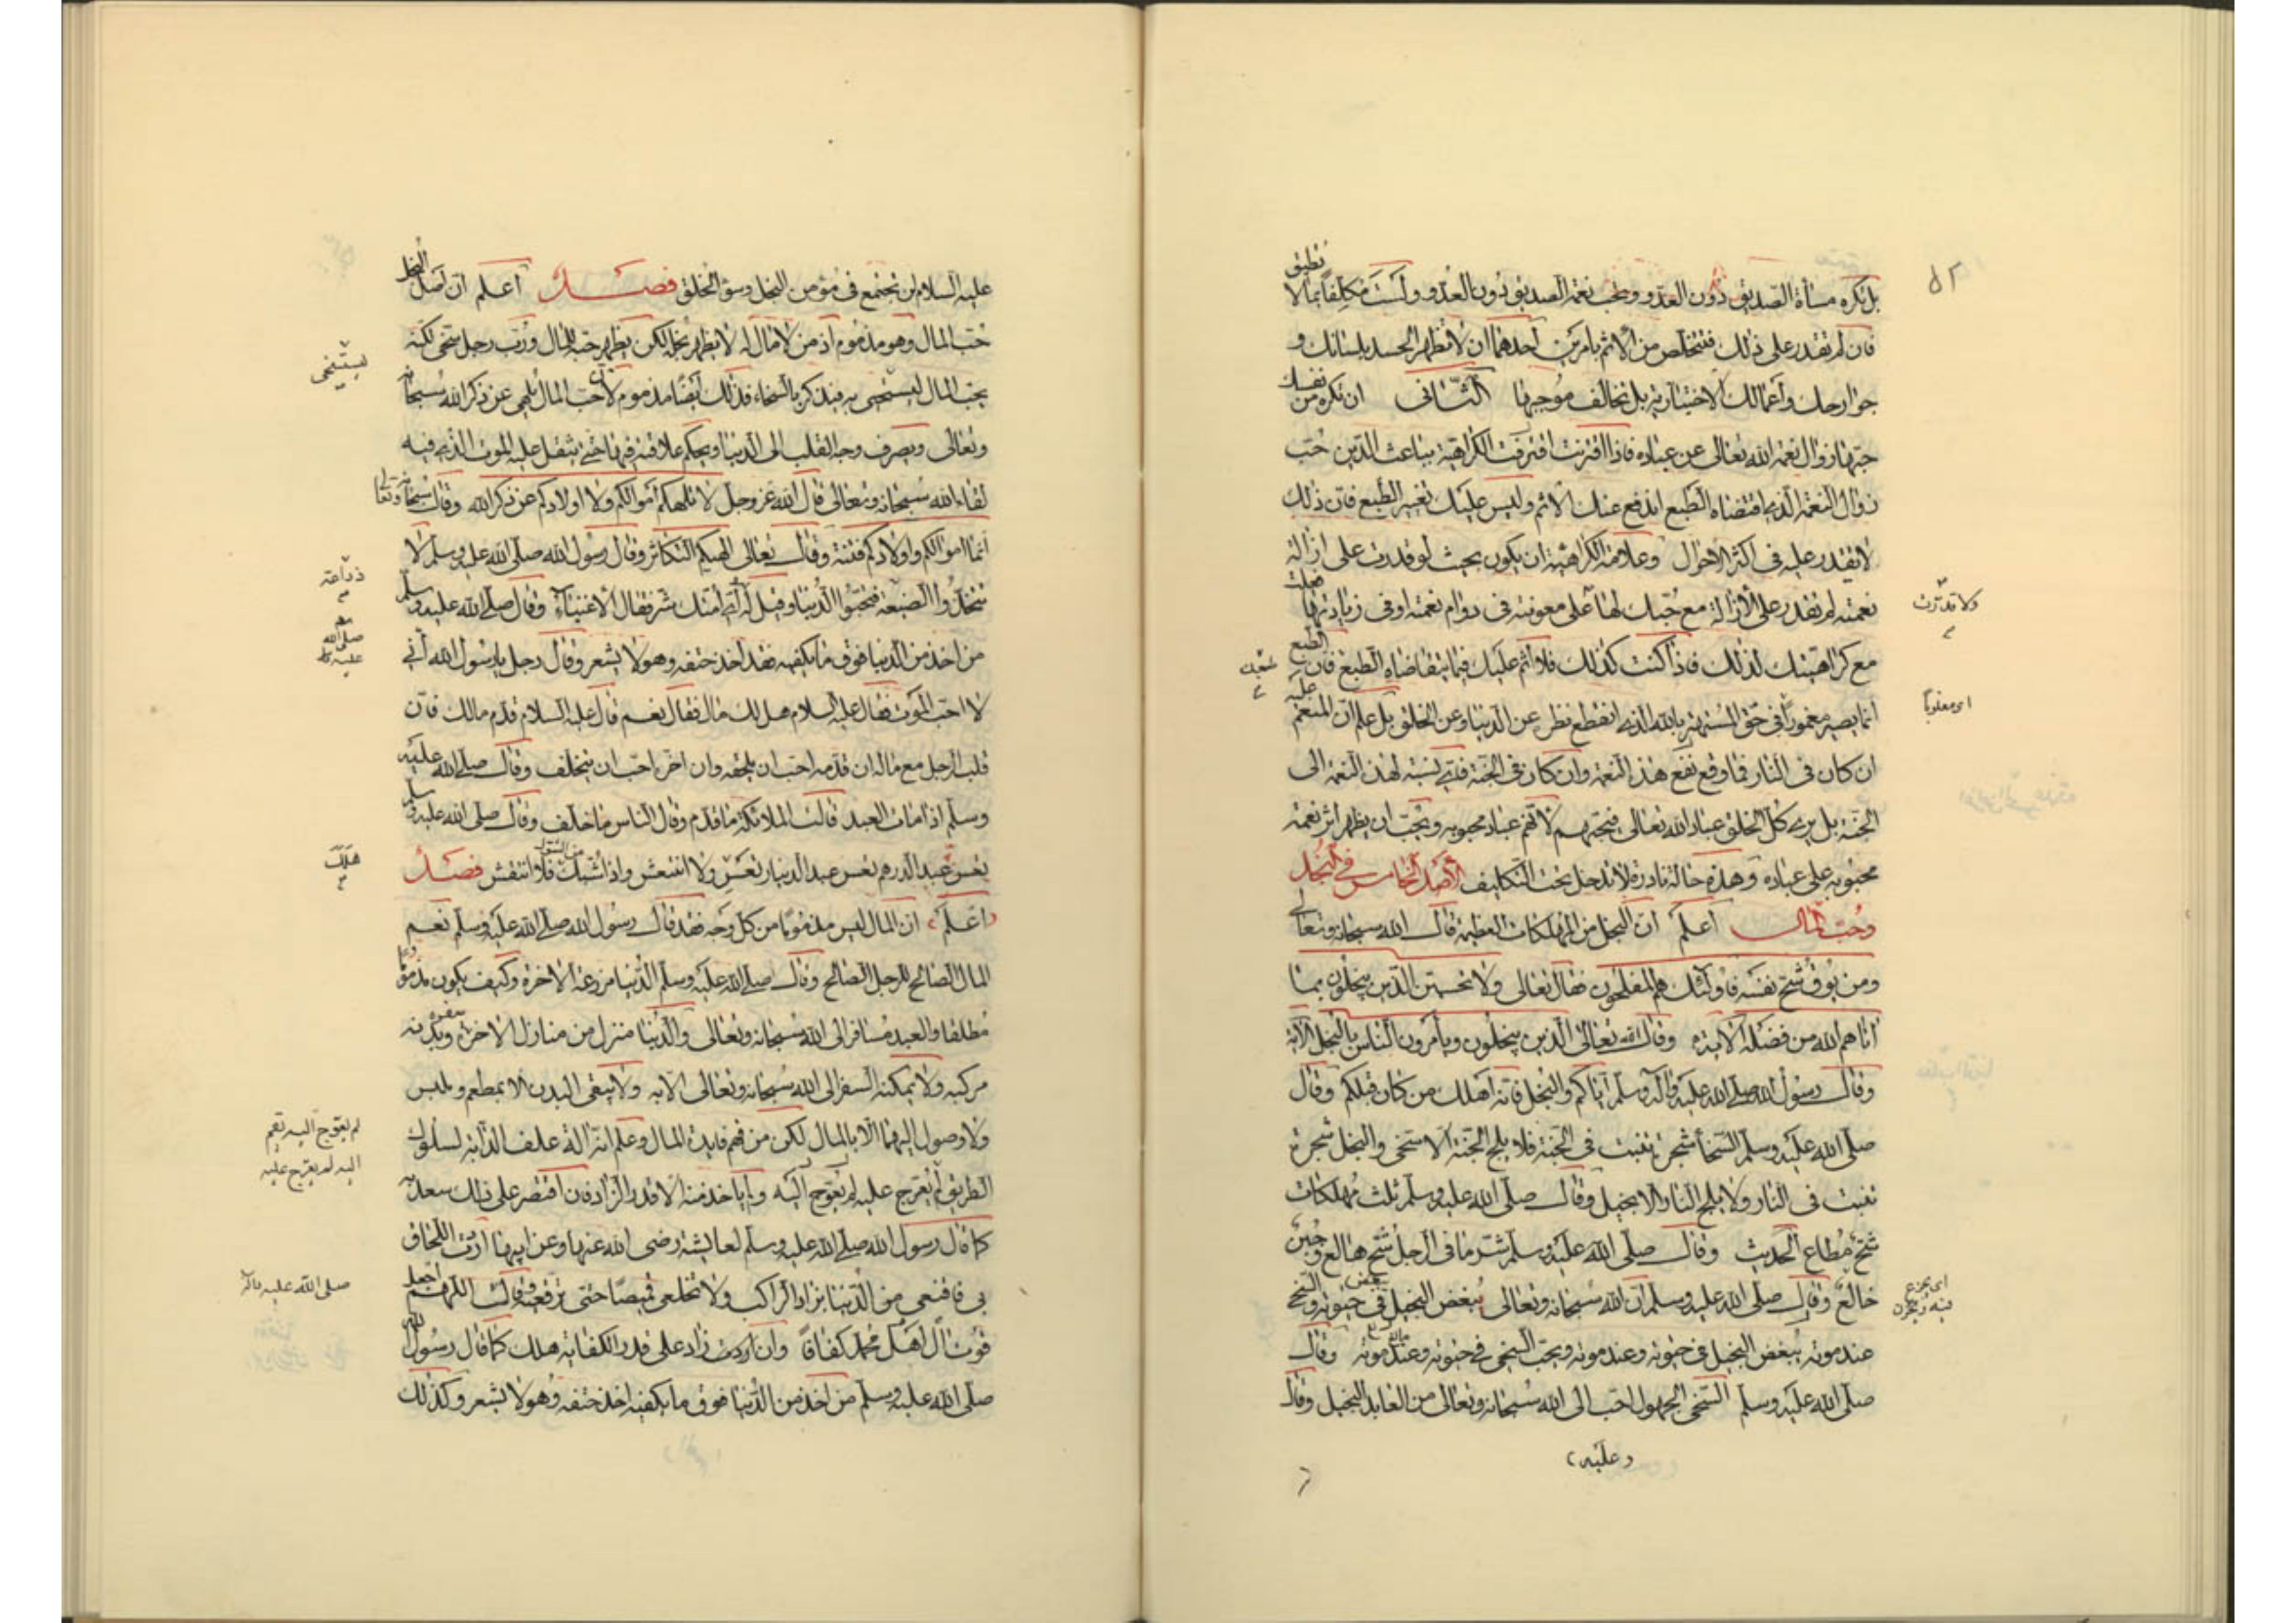 بل يكره مساة الصديق دون العدو ويحب نعمة الصديق دون العدو ولست مكلفا بما لا تطيق
فان لم تقدر على ذلك فتتخلص من الاثم بامرين احدهما ان لا تظهر الحسد بلسانك و
جوارحك واعمالك الاختيارية بل تخالف موجبها الثانى ان تكره من نفسك
حبها زوال نعمة الله تعالى عن عباده فاذا اقترنت الكراهية بباعث الدين حب
زوال النعمة الذى اقتضاه الطبع اندفع عنك الاثم وليس عليك تغيير الطبع فان ذلك
لا تقدر عليه فى اكثر الاحوال وعلامة الكراهية ان يكون بحيث لو قدرت على ازالة
نعمته لم تقدر على الازالة مع حبك لها على معونته فى دوام نعمته او فى زيادتها
ولا قدرت
مع كراهيتك لذلك فاذا كنت كذلك فلا اثم عليك فيما يتقاضاه الطبع فان الطبع
انما يصير مغمورا فى حق المستهتر بالله الذى انقطع نظره عن الدنيا وعن الخلق بل علم ان المنعم عليه
اى مغلوبا
ان كان فى النار فما وقع نفع هذه النعمة وان كان فى الجنة فاى نسبة لهذه النعمة الى
الجنة بل يرى كل الخلق عباد الله تعالى فيحبهم لانهم عباد محبوبه ويحب ان يظهر اثر نعمة
محبوبه على عباده وهذه حالة نادرة لا تدخل تحت التكليف الاصل الخامس فى البخل
وحب المال اعلم ان البخل من المهلكات العظيمة قال الله سبحانه وتعالى
ومن يوق شح نفسه فاولئك هم المفلحون فقال تعالى ولا تحسبن الذين يبخلون بما
اتاهم الله من فضله الاية وقال الله تعالى الذين يبخلون ويامرون الناس بالبخل الاية
وقال رسول الله صلى الله عليه وآله وسلم اياكم والبخل فانه اهلك من كان قبلكم وقال
صلى الله عليه وسلم السخا شجرة تنبت فى الجنة فلا يلج الجنة الا سخى والبخل شجرة
تنبت فى النار ولا يلج النار الا بخيل وقال صلى الله عليه وسلم ثلث مهلكات
شح مطاع الحديث وقال صلى الله عليه وسلم شر ما فى الرجل شح هالع وجبن
خالع وقال صلى الله عليه وسلم ان الله سبحانه وتعالى يبغض البخيل فى حيوته والسخى
عند موته يبغض البخيل فى حيوته وعند موته ويحب السخى فى حيوته وعند موته وقال
صلى الله عليه وسلم السخى الجهول احب الى الله سبحانه وتعالى من العابد البخيل وقال
عليه
عليه السلام لن تجتمع فى مؤمن البخل وسوء الخلق فصل اعلم ان اصل البخل
حب المال وهو مذموم اذ من لا مال له لا يظهر بخله لكن يظهر حبه للمال ورب رجل سخى لكنه
يحب المال ليستحيى به فيذكر بالسخاء فذلك ايضا مذموم لان حب المال يلهى عن ذكر الله سبحانه
وتعالى ويصرف وجه القلب الى الدنيا ويحكم علاقته فيها حتى يثقل عليه الموت الذى فيه
لقاء الله سبحانه وتعالى قال الله عز وجل لا تلهكم اموالكم ولا اولادكم عن ذكر الله وقال سبحانه وتعالى
انما اموالكم واولادكم فتنة وقال تعالى الهيكم التكاثر وقال رسول الله صلى الله عليه وسلم لا
تتخذوا الضيعة فتحبوا الدنيا وقيل له اى امتك شر فقال الاغنياء وقال صلى الله عليه وسلم
من اخذ من الدنيا فوق ما يكفيه فقد اخذ حتفه وهو لا يشعر وقال رجل يا رسول الله انى
لا احب الموت فقال عليه السلام هل لك مال فقال نعم قال عليه السلام قدم مالك فان
قلب الرجل مع ماله ان قدمه احب ان يلحقه وان اخره احب ان يتخلف وقال صلى الله عليه
وسلم اذا مات العبد قالت الملائكة ما قدم وقال الناس ما خلف وقال صلى الله عليه وسلم
تعس عبد الدرهم تعس عبد الدينار تعس ولا انتعش واذا شيك فلا انتقش فصل
هلك
اعلم ان المال ليس مذموما من كل وجه فقد قال رسول الله صلى الله عليه وسلم نعم
المال الصالح للرجل الصالح وقال صلى الله عليه وسلم الدنيا مزرعة الاخرة وكيف يكون مذموما
مطلقا والعبد مسافر الى الله سبحانه وتعالى والدنيا منزل من منازل الاخرة وبدنه
مركبه ولا يمكنه السفر الى الله سبحانه وتعالى الا به ولا يبقى البدن الا بمطعم وملبس
ولا وصول اليهما الا بالمال لكن من فهم فايدة المال وعلم انه الة علف الدابة لسلوك
الطريق لم يعرج عليه لم يعوج اليه ولم ياخذ منه الا قدر الزاد فان اقتصر على ذلك سعد به
كما قال رسول الله صلى الله عليه وسلم لعايشة رضى الله عنها وعن ابيها اردت اللحاق
بى فاقنعى من الدنيا بزاد الراكب ولا تخلعى قميصا حتى ترقعيه وقال اللهم اجعل
صلى الله عليه وآله
قوت ال محمد كفافا وان زاد على قدر الكفاية هلك كما قال رسول الله
صلى الله عليه وسلم من اخذ من الدنيا فوق ما يكفيه اخذ حتفه وهو لا يشعر وكذلك